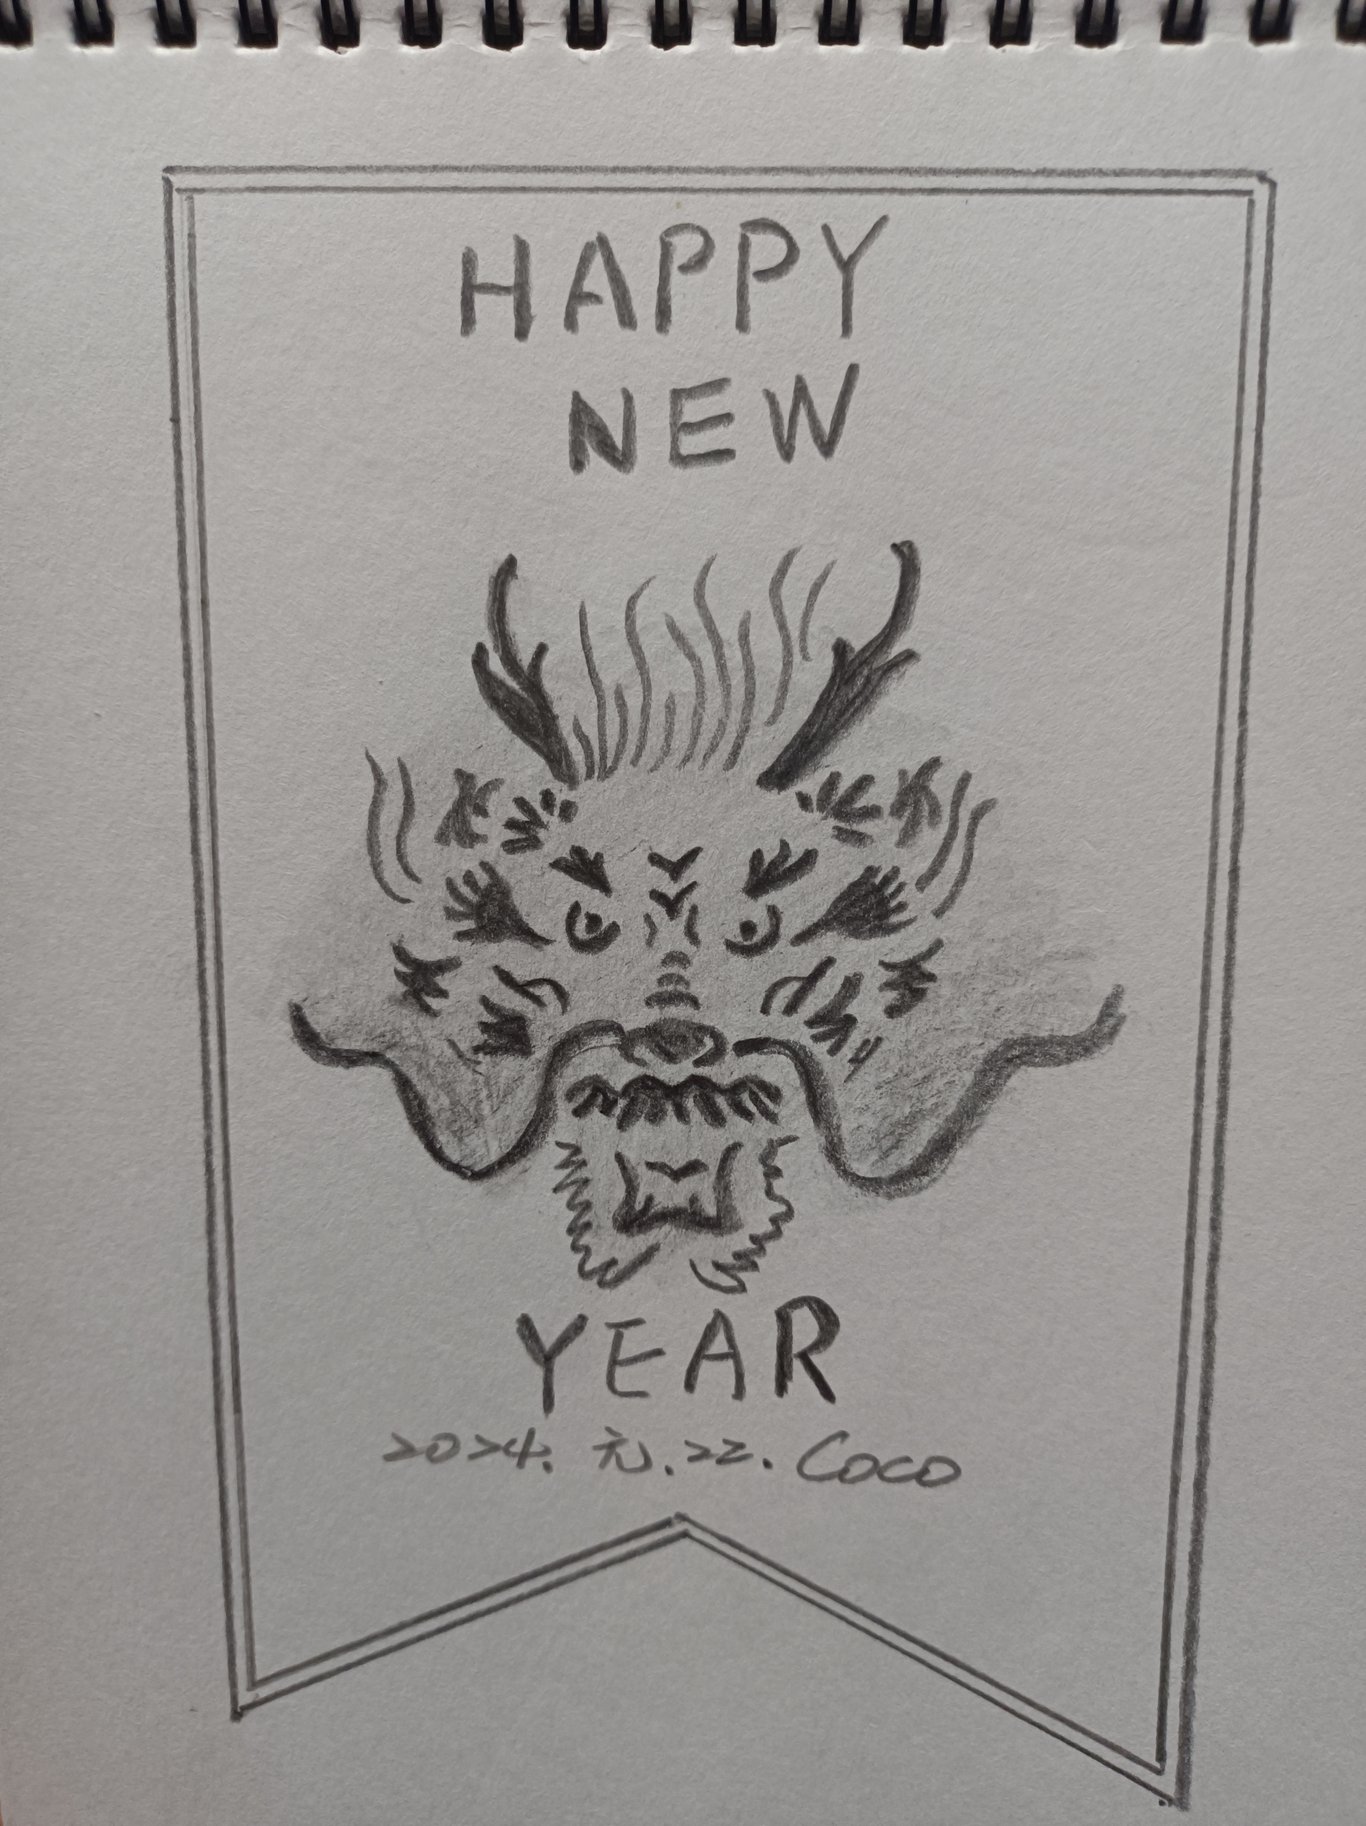 HAPPY
NEW
YEAR
2024.元.22.Coco